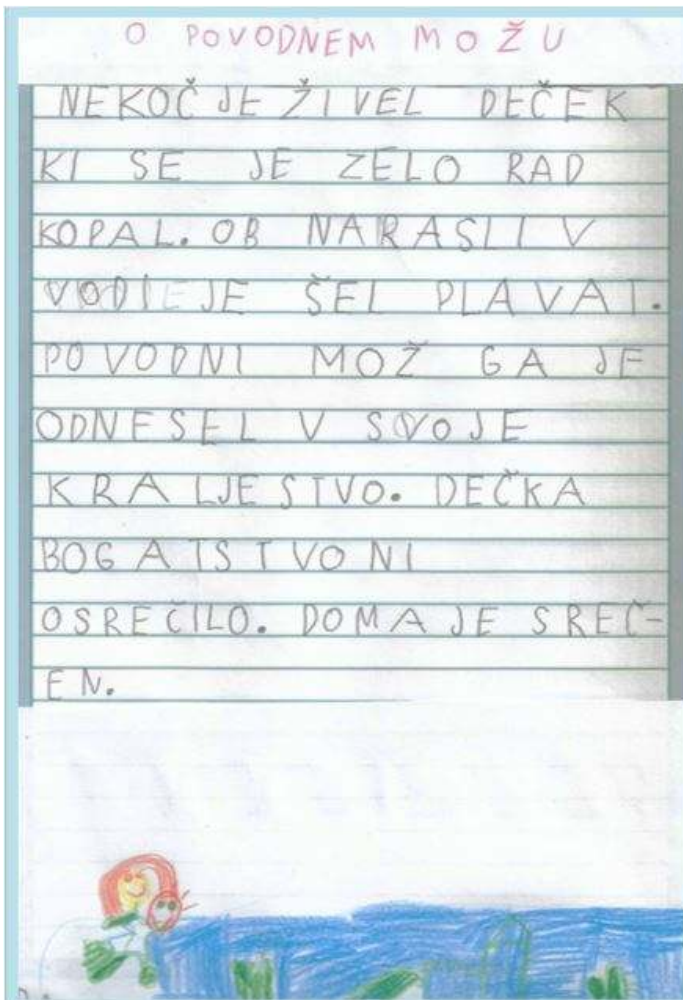 O POVODNEM MOŽU
NEKOČ JE ŽIVEL DEČEK
KI SE JE ZELO RAD
KOPAL. OB NARASLI V
VODI JE ŠEL PLAVAT.
POVODNI MOŽ GA JE
ODNESEL V SVOJE
KRALJESTVO. DEČKA
BOGATSTVO NI
OSREČILO. DOMA JE SREČ-
EN.